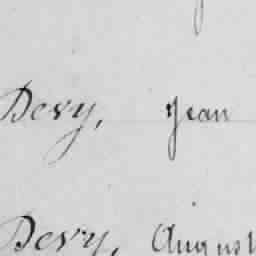 Devy, Jean
Devy, August